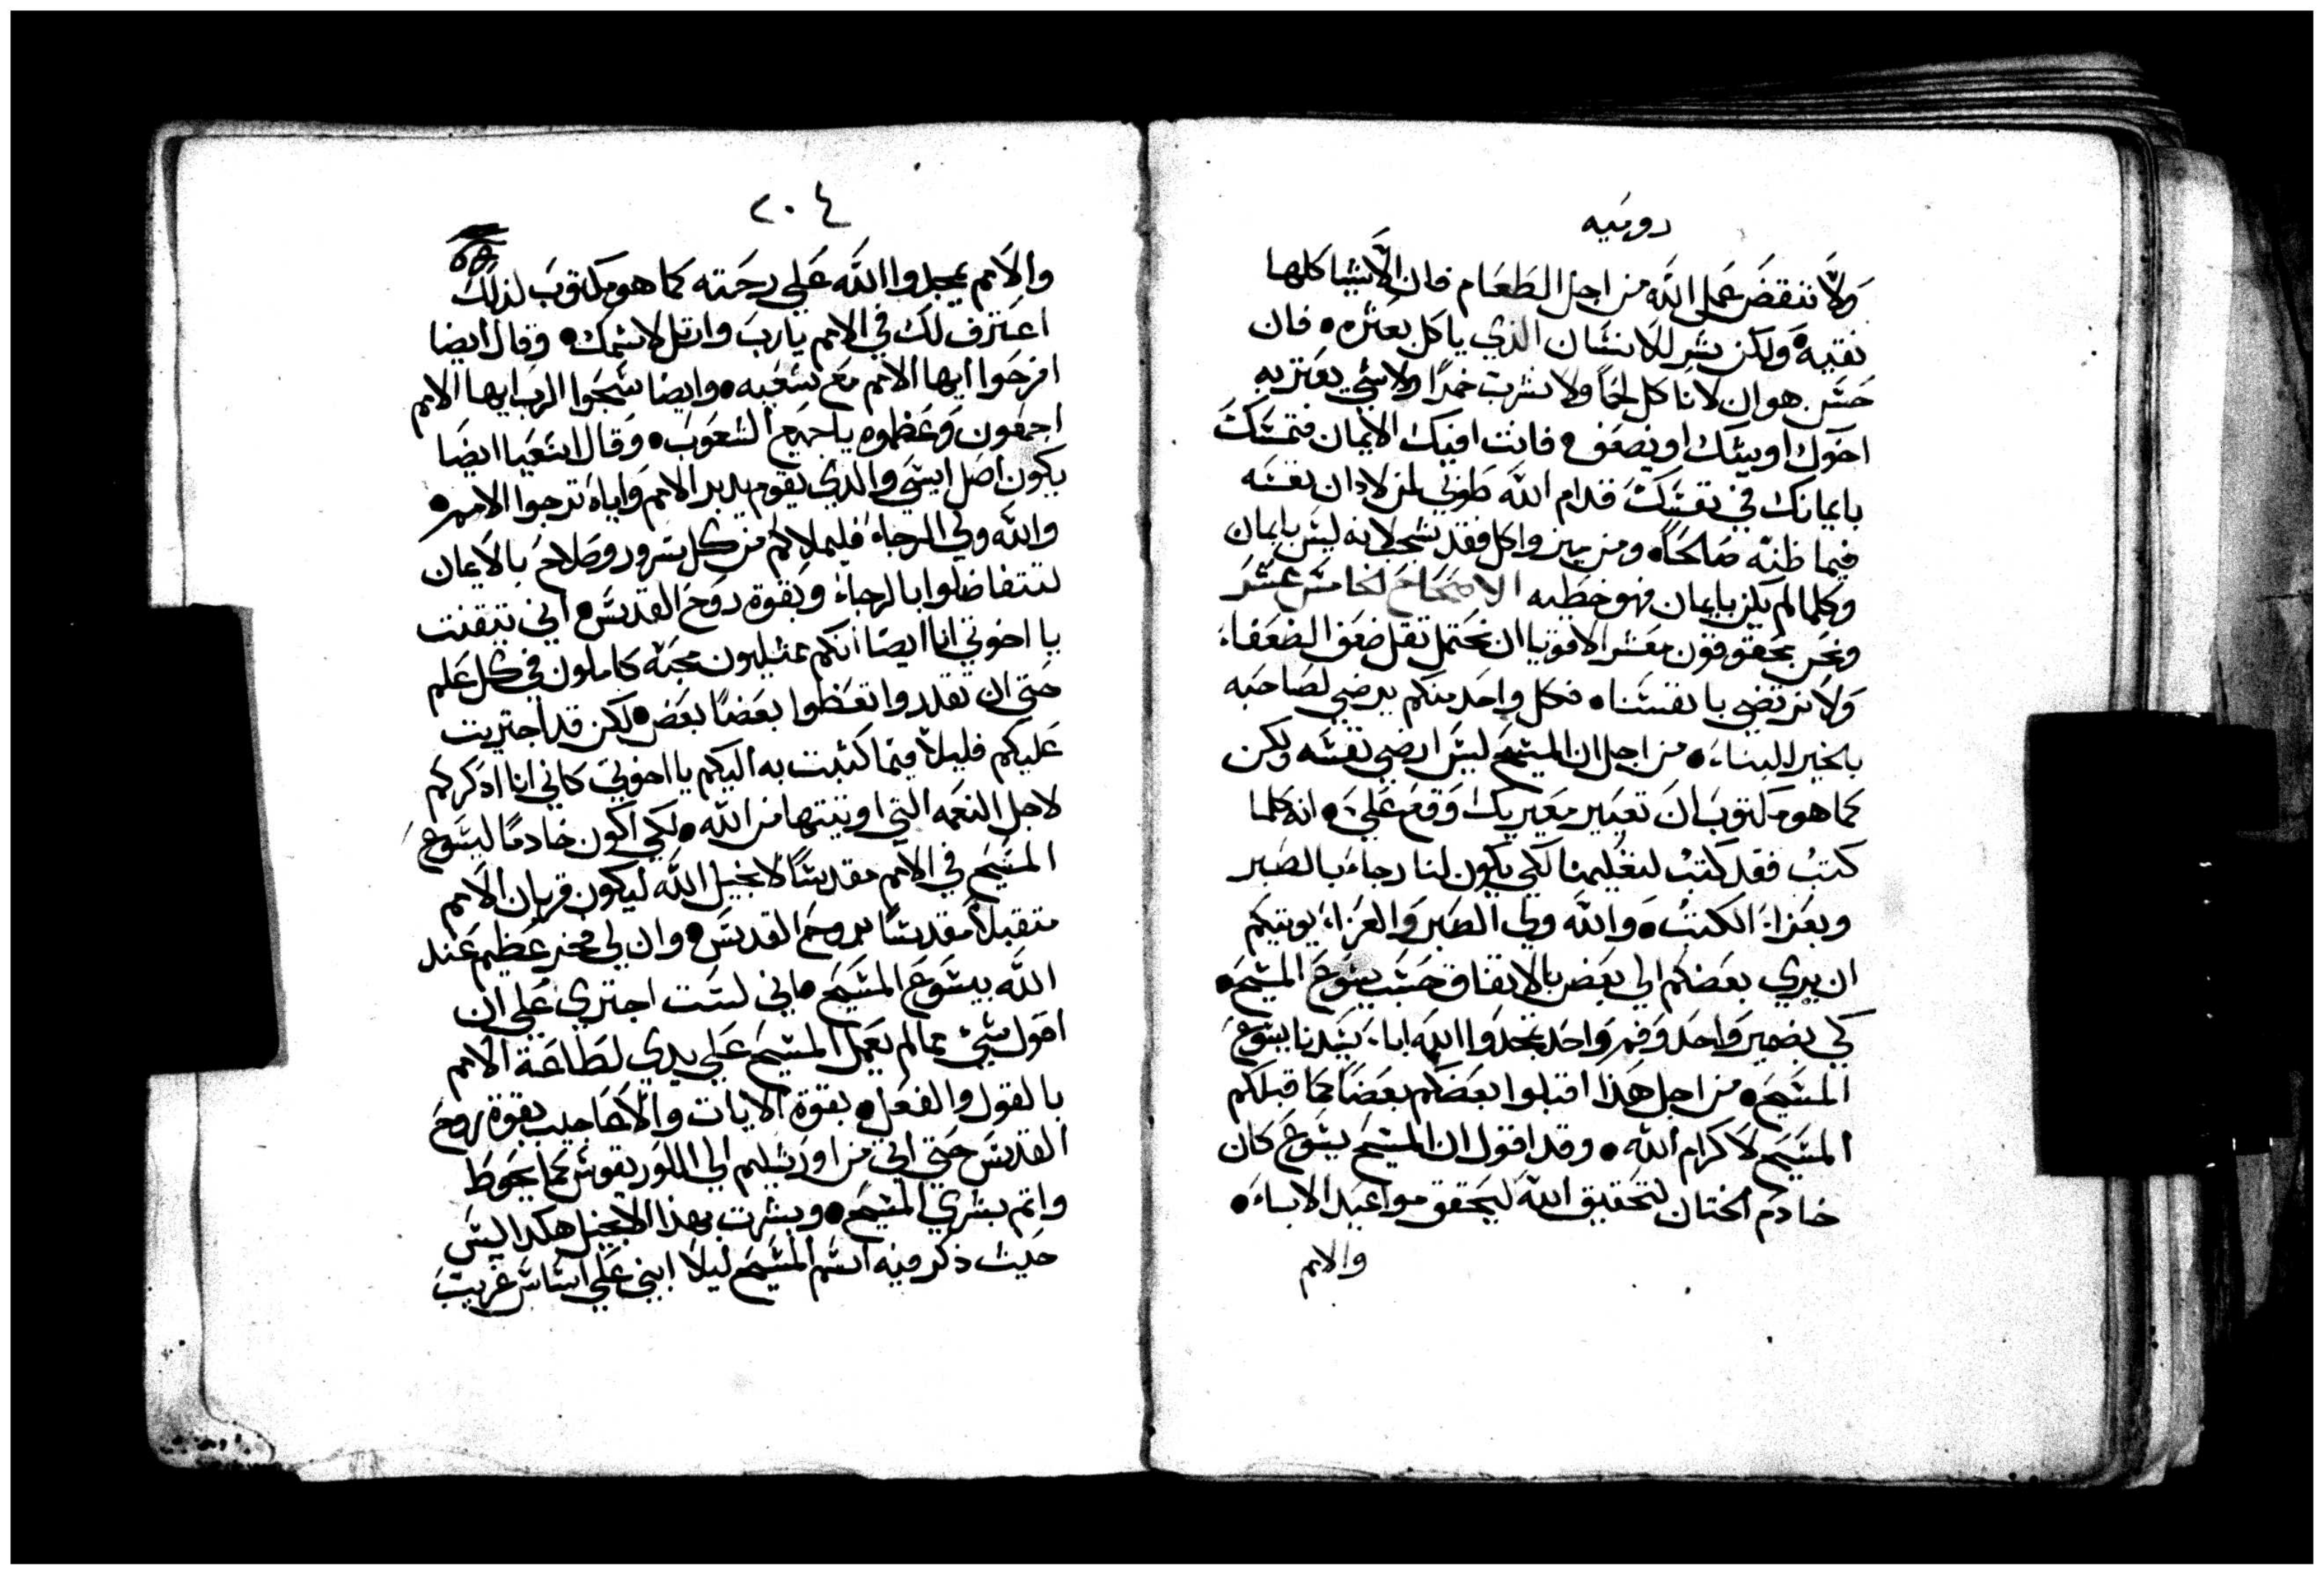 روميه
ولا تنقض عمل الله من اجل الطعام فان الاشيا كلها
نقيه ولكن شر للانسان الذي ياكل بعثره • فان
حسن هو ان لا تاكل لحماً ولا تشرب خمرًا ولا شي يعتر به
اخوك او يشك او يضعف • فانت افيك الايمان فتمسك
بايمانك في نفسك قدام الله طوبي لمن لا دان نفسه
فيما ظنه صالحاً • ومن يميز واكل فقد شجب لانه ليس بايمان
وكلما لم يكن بايمان فهو خطيه الاصحاح الخامس عشر
ونحن محقوقون معشر الاقويا ان نحتمل ثقل ضعف الضعفاء
ولا نرتضي بانفسنا • فكل واحد منكم يرضي لصاحبه
بالخير للبناء • من اجل ان المسيح ليس ارضي نفسه ولكن
كما هو مكتوب ان تعيير معيريك وقع علي • انه كلما
كتب فقد كتب لتعليمنا لكي يكون لنا رجاء بالصبر
وبعزاء الكتب • والله ولي الصبر والعزاء يوتيكم
ان يري بعضكم الي بعض بالاتفاق حسب يسوع المسيح •
كي بضمير واحد وفم واحد تمجدوا الله ابا سيدنا يسوع
المسيح • من اجل هذا اقبلوا بعضكم بعضاً كما قبلكم
المسيح لاكرام الله • وقد اقول ان المسيح يسوع كان
خادم الختان لتحقيق الله ليحقق مواعيد الاباء •
والامم
٢٠٤
والامم يمجدوا الله علي رحمته كما هو مكتوب لذلك
اعترف لك في الامم يا رب وارتل لاسمك • وقال ايضا
افرحوا ايها الامم مع شعبه • وايضا سبحوا الرب ايها الامم
اجمعون وعظموه يا جميع الشعوب • وقال اشعيا ايضا
يكون اصل ايشي والذي يقوم يدبر الامم واياه ترجوا الامم •
والله ولي الرجاء فليملاكم من كل سرور وصلاح بالايمان
لتتفاضلوا بالرجاء وبقوة روح القدس • اني تيقنت
يا اخوتي انا ايضا انكم ممتليون محبه كاملون في كل علم
حتي ان تقدروا تعظوا بعضاً بعض • لكن قد اجتريت
عليكم قليلاً فيما كتبت به اليكم يا اخوتي كاني انا اذكركم
لاجل النعمه التي اوتيتها من الله • لكي اكون خادمًا ليسوع
المسيح في الامم مقدساً لانجيل الله ليكون قربان الامم
متقبلاً مقدساً بروح القدس • وان لي فخر عظيم عند
الله بيسوع المسيح • اني لست اجتري علي ان
اقول شي مما لم يعمل المسيح علي يدي لطاعة الامم
بالقول والفعل • بقوة الايات والاعاجيب بقوة روح
القدس حتي اني من اورشليم الي اللوريقوس كما يحوط
واتم بشري المسيح • وبشرت بهذا الانجيل هكدا ليس
حيث ذكر فيه اسم المسيح ليلا ابني علي اساس غريب